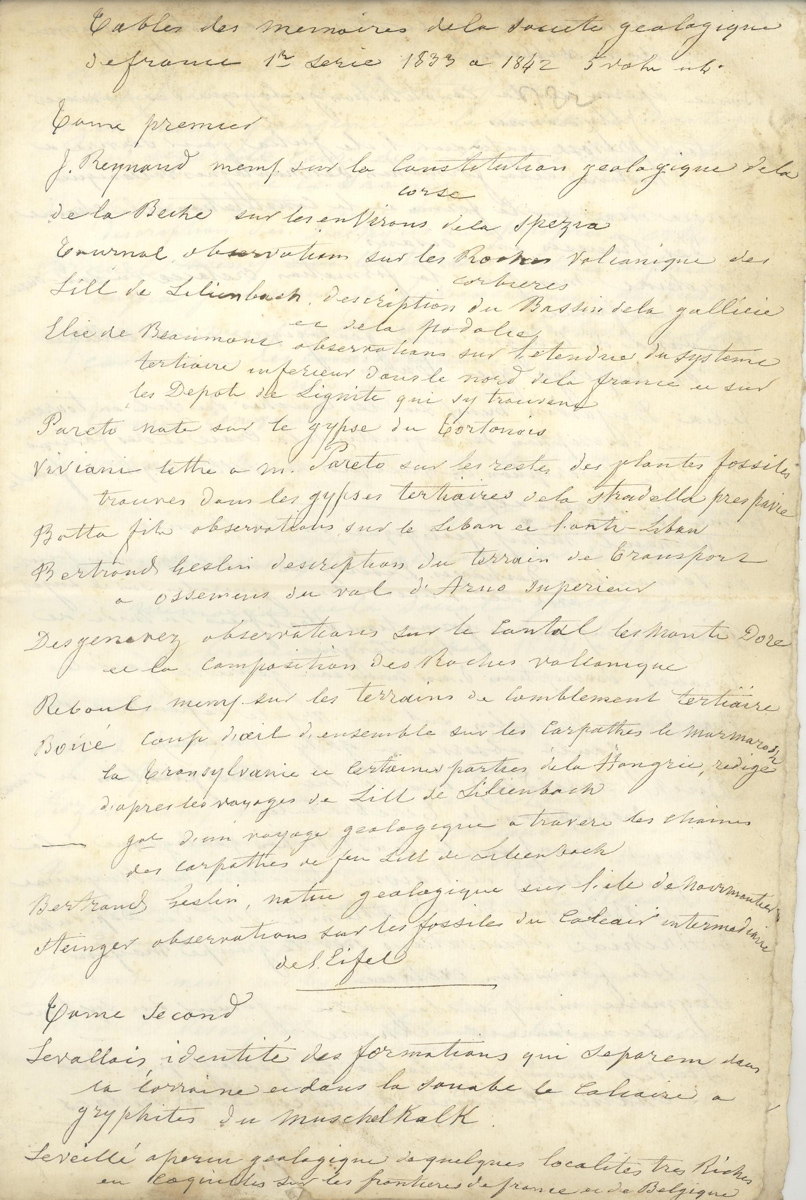 Tables des memoires de la Societe geologique
de france 1re serie 1833 a 1842 5 vols
Tome premier
J. Reynaud mem. sur la Constitution geologique de la
corse
de la Beche sur les environs de la Spezia
Tournal observations sur les Roches volcanique des
corbieres
Lill de Lilienbach, description du Bassin de la gallicie
et de la podolie
Elie de Beaumont observations sur l'etendue du systeme
tertiaire inferieur dans le nord de la france et sur
les Depots de Lignite qui sy trouvent
Pareto note sur le gypse du Tortonois
Viviani lettre a m. Pareto sur les restes des plantes fossiles
trouves dans les gypses tertiaires de la stradella pres pavie
Botta fils observations sur le Liban et l'anti-Liban
Bertrand Geslin description du terrain de transport
a ossemens du val d'Arno superieur
Desgenevez observations sur le Cantal les monts Dore
et la composition des Roches volcanique
Reboul mem. sur les terrains de Comblement tertiaire
Boué Coup d'œil d'ensemble sur les Carpathes le marmarosh
la Transylvanie et certaines parties de la Hongrie, redigé
d'apres les voyages de Lill de Lilienbach
— jal d'un voyage geologique a travers les chaines
des carpathes de feu Lill de Lilienbach
Bertrand Geslin, notice geologique sur l'ile de noirmoutier
Steinger observations sur les fossiles du Calcair intermediaire
de l'Eifel
Tome second
Levallois identité des formations qui separent dans
la Lorraine et dans la Souabe le Calcaire a
gryphites du muschelkalk.
Leveillé apercu geologique de quelques localites tres Riches
en coquilles sur les frontieres de france et de Belgique